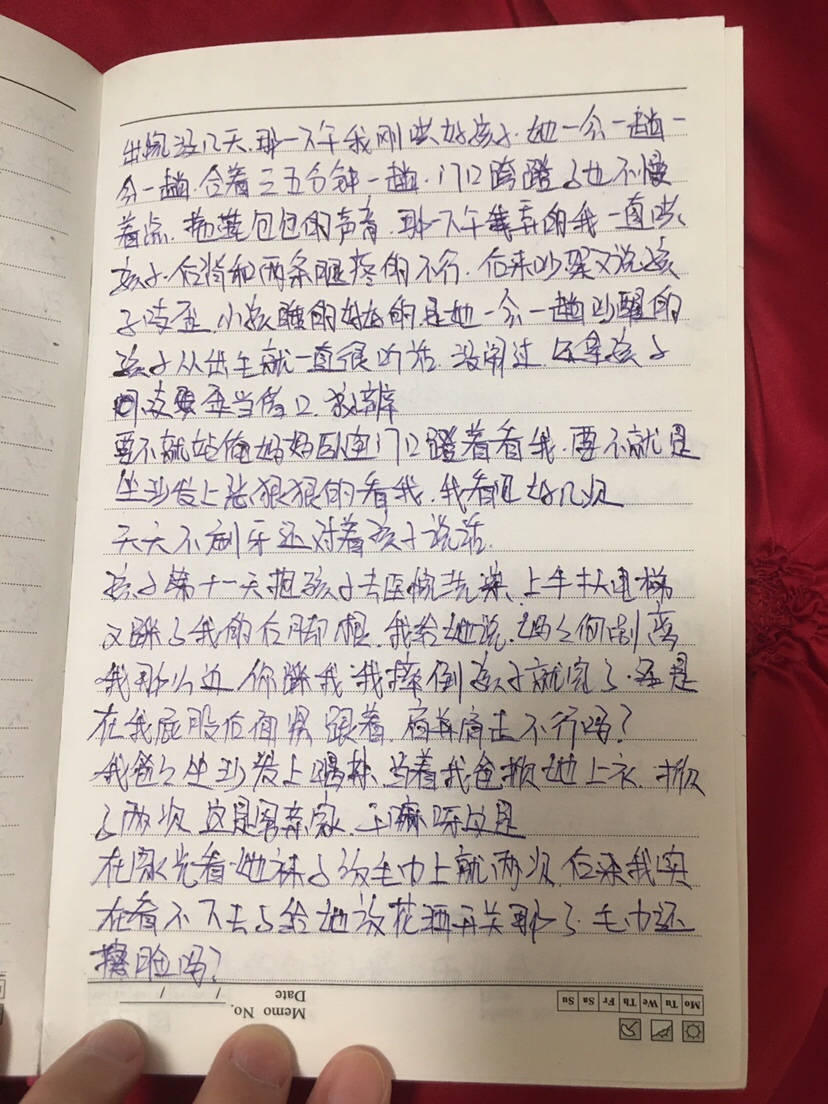 出院没几天.那一下午我刚哄好孩子.她一会一趟一
会一趟.合着三五分钟一趟.门口 了也不慢
着点.拖鞋包包的声音.那一下午弄的我一直哄
孩子.后背和两条腿疼的不行.后来吵架又说孩
子 小孩睡的好好的.是她一会一趟吵醒的
孩子从出生就一直很听话.没闹过.还拿孩子
当借口.狡辩
要不就站俺妈妈卧室门口瞪着看我.要不就是
坐沙发上恶狠狠的看我.我看见好几次
天天不刷牙还对着孩子说话.
孩子第十一天抱孩子去医院洗澡.上手扶电梯
又踩了我的后脚根.我给她说.妈么你别离
我那么近 你踩我.我摔倒孩子就完了.还是
在我屁股后面紧跟着.肩并肩走不行吗?
我爸么坐沙发上喝茶.当着我爸掀她上衣.掀
了两次 这是男亲家.干嘛呀这是
在 光看她袜子放毛巾上就两次.后来我实
在看不下去了给她放花洒开关那了.毛巾还
擦脸吗?
Memo No.
Date / /
Mo Tu We Th Fr Sa Su